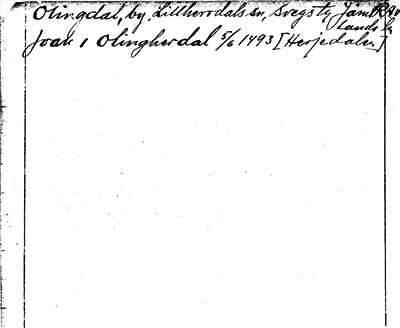 Olingdal, by, Lillherrdals sn, Svegs tg Jämt
lands län
Joan i Olingherdal 5/6 1493 [Herjedalen]